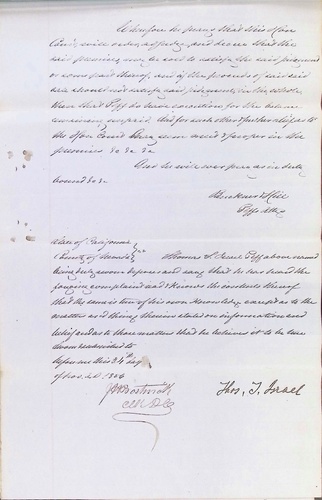 Wherefore he prays that this Hon
Court, will order, adjudge, and decree that the
said premises may be sold to satisfy the said judgment
or some part thereof, and if the proceeds of said sale
shall not satisfy said judgment, in the whole,
then that Plff do have execution for the balance
remaining unpaid. And for such other & further relief as to
the Hon Court may seem meet & proper in the
premises &c &c &c
And he will ever pray as in duty
bound &c
& Hill
Plffs Attys
State of California
County of ss
Thomas J. Israel Plff above named
being duly sworn deposes and says that he has read the
foregoing complaint and knows the contents thereof
that the same is true of his own knowledge except as to the
matters and things therein stated on information and
belief and as to those matters that he believes it to be true
Sworn & subscribed to
before me this 24th day
of Nov. AD 1866
Thos. J. Israel